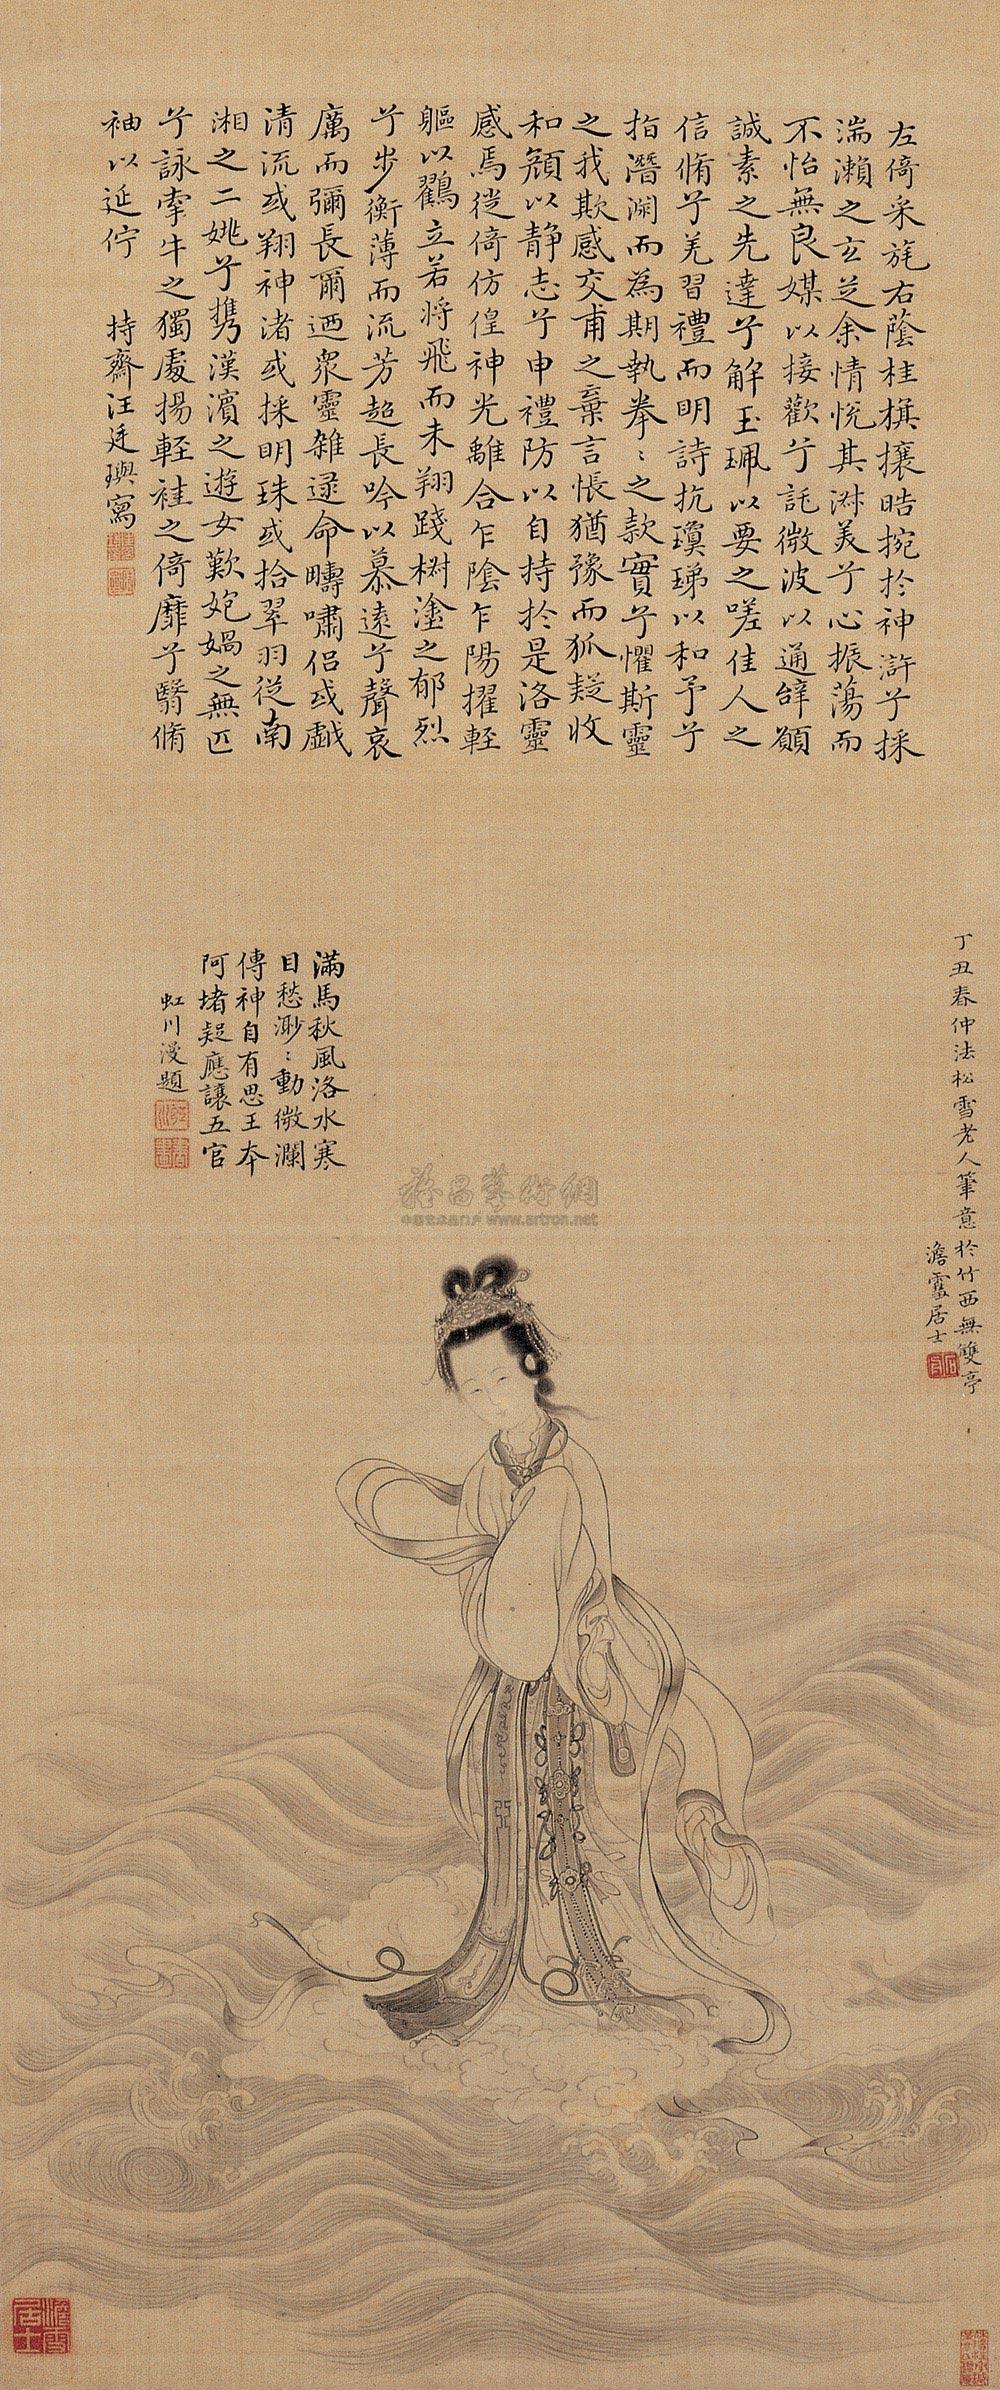 左倚采旄右蔭桂旗攘皓捥於神滸兮採
湍瀨之玄芝余情悅其淑美兮心振蕩而
不怡無良媒以接歡兮託微波以通辭願
誠素之先達兮解玉珮以要之嗟佳人之
信脩兮羌習禮而明詩抗瓊珶以和予兮
指潛淵而為期執拳〻之款實兮懼斯靈
之我欺感交甫之棄言悵猶豫而狐疑收
和顏以靜志兮申禮防以自持於是洛靈
感焉從倚仿偟神光離合乍陰乍陽擢輕
軀以鶴立若將飛而未翔踐樹塗之郁烈
兮步衡薄而流芳超長吟以慕遠兮聲哀
厲而彌長爾迺眾靈雜遝命疇嘯侶或戲
清流或翔神渚或採明珠或拾翠羽從南
湘之二姚兮攜漢濱之遊女歎匏媧之無匹
兮詠牽牛之獨處揚輕袿之倚靡兮翳脩
袖以延佇 持齋汪廷璵寫
丁丑春仲法松雪老人筆意於竹西無雙亭
澹雪居士
滿馬秋風洛水寒
目愁渺〻動微瀾
傳神自有思王本
阿堵疑應讓五官
虹川漫題
www.artron.net
澹雪居士